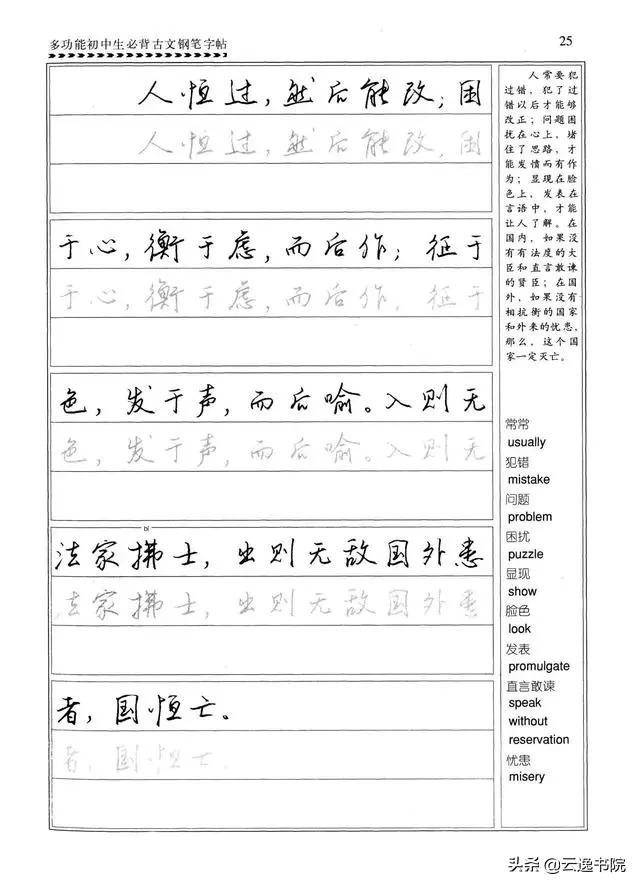 多功能初中生必背古文钢笔字帖
25
人恒过，然后能改；困
人恒过，然后能改，困
于心，衡于虑，而后作；征于
于心，衡于虑，而后作，征于
色，发于声，而后喻。入则无
色，发于声，而后喻。入则无
bì
法家拂士，出则无敌国外患
法家拂士，出则无敌国外患
者，国恒亡。
者，国恒亡。
人常要犯
过错，犯了过
错以后才能够
改正；问题困
扰在心上，堵
住了思路，才
能发愤而有作
为；显现在脸
色上，发表在
言语中，才能
让人了解。在
国内，如果没
有有法度的大
臣和直言敢谏
的贤臣；在国
外，如果没有
相抗衡的国家
和外来的忧患，
那么，这个国
家一定灭亡。
常常
usually
犯错
mistake
问题
problem
困扰
puzzle
显现
show
脸色
look
发表
promulgate
直言敢谏
speak
without
reservation
忧患
misery
头条 @云逸书院